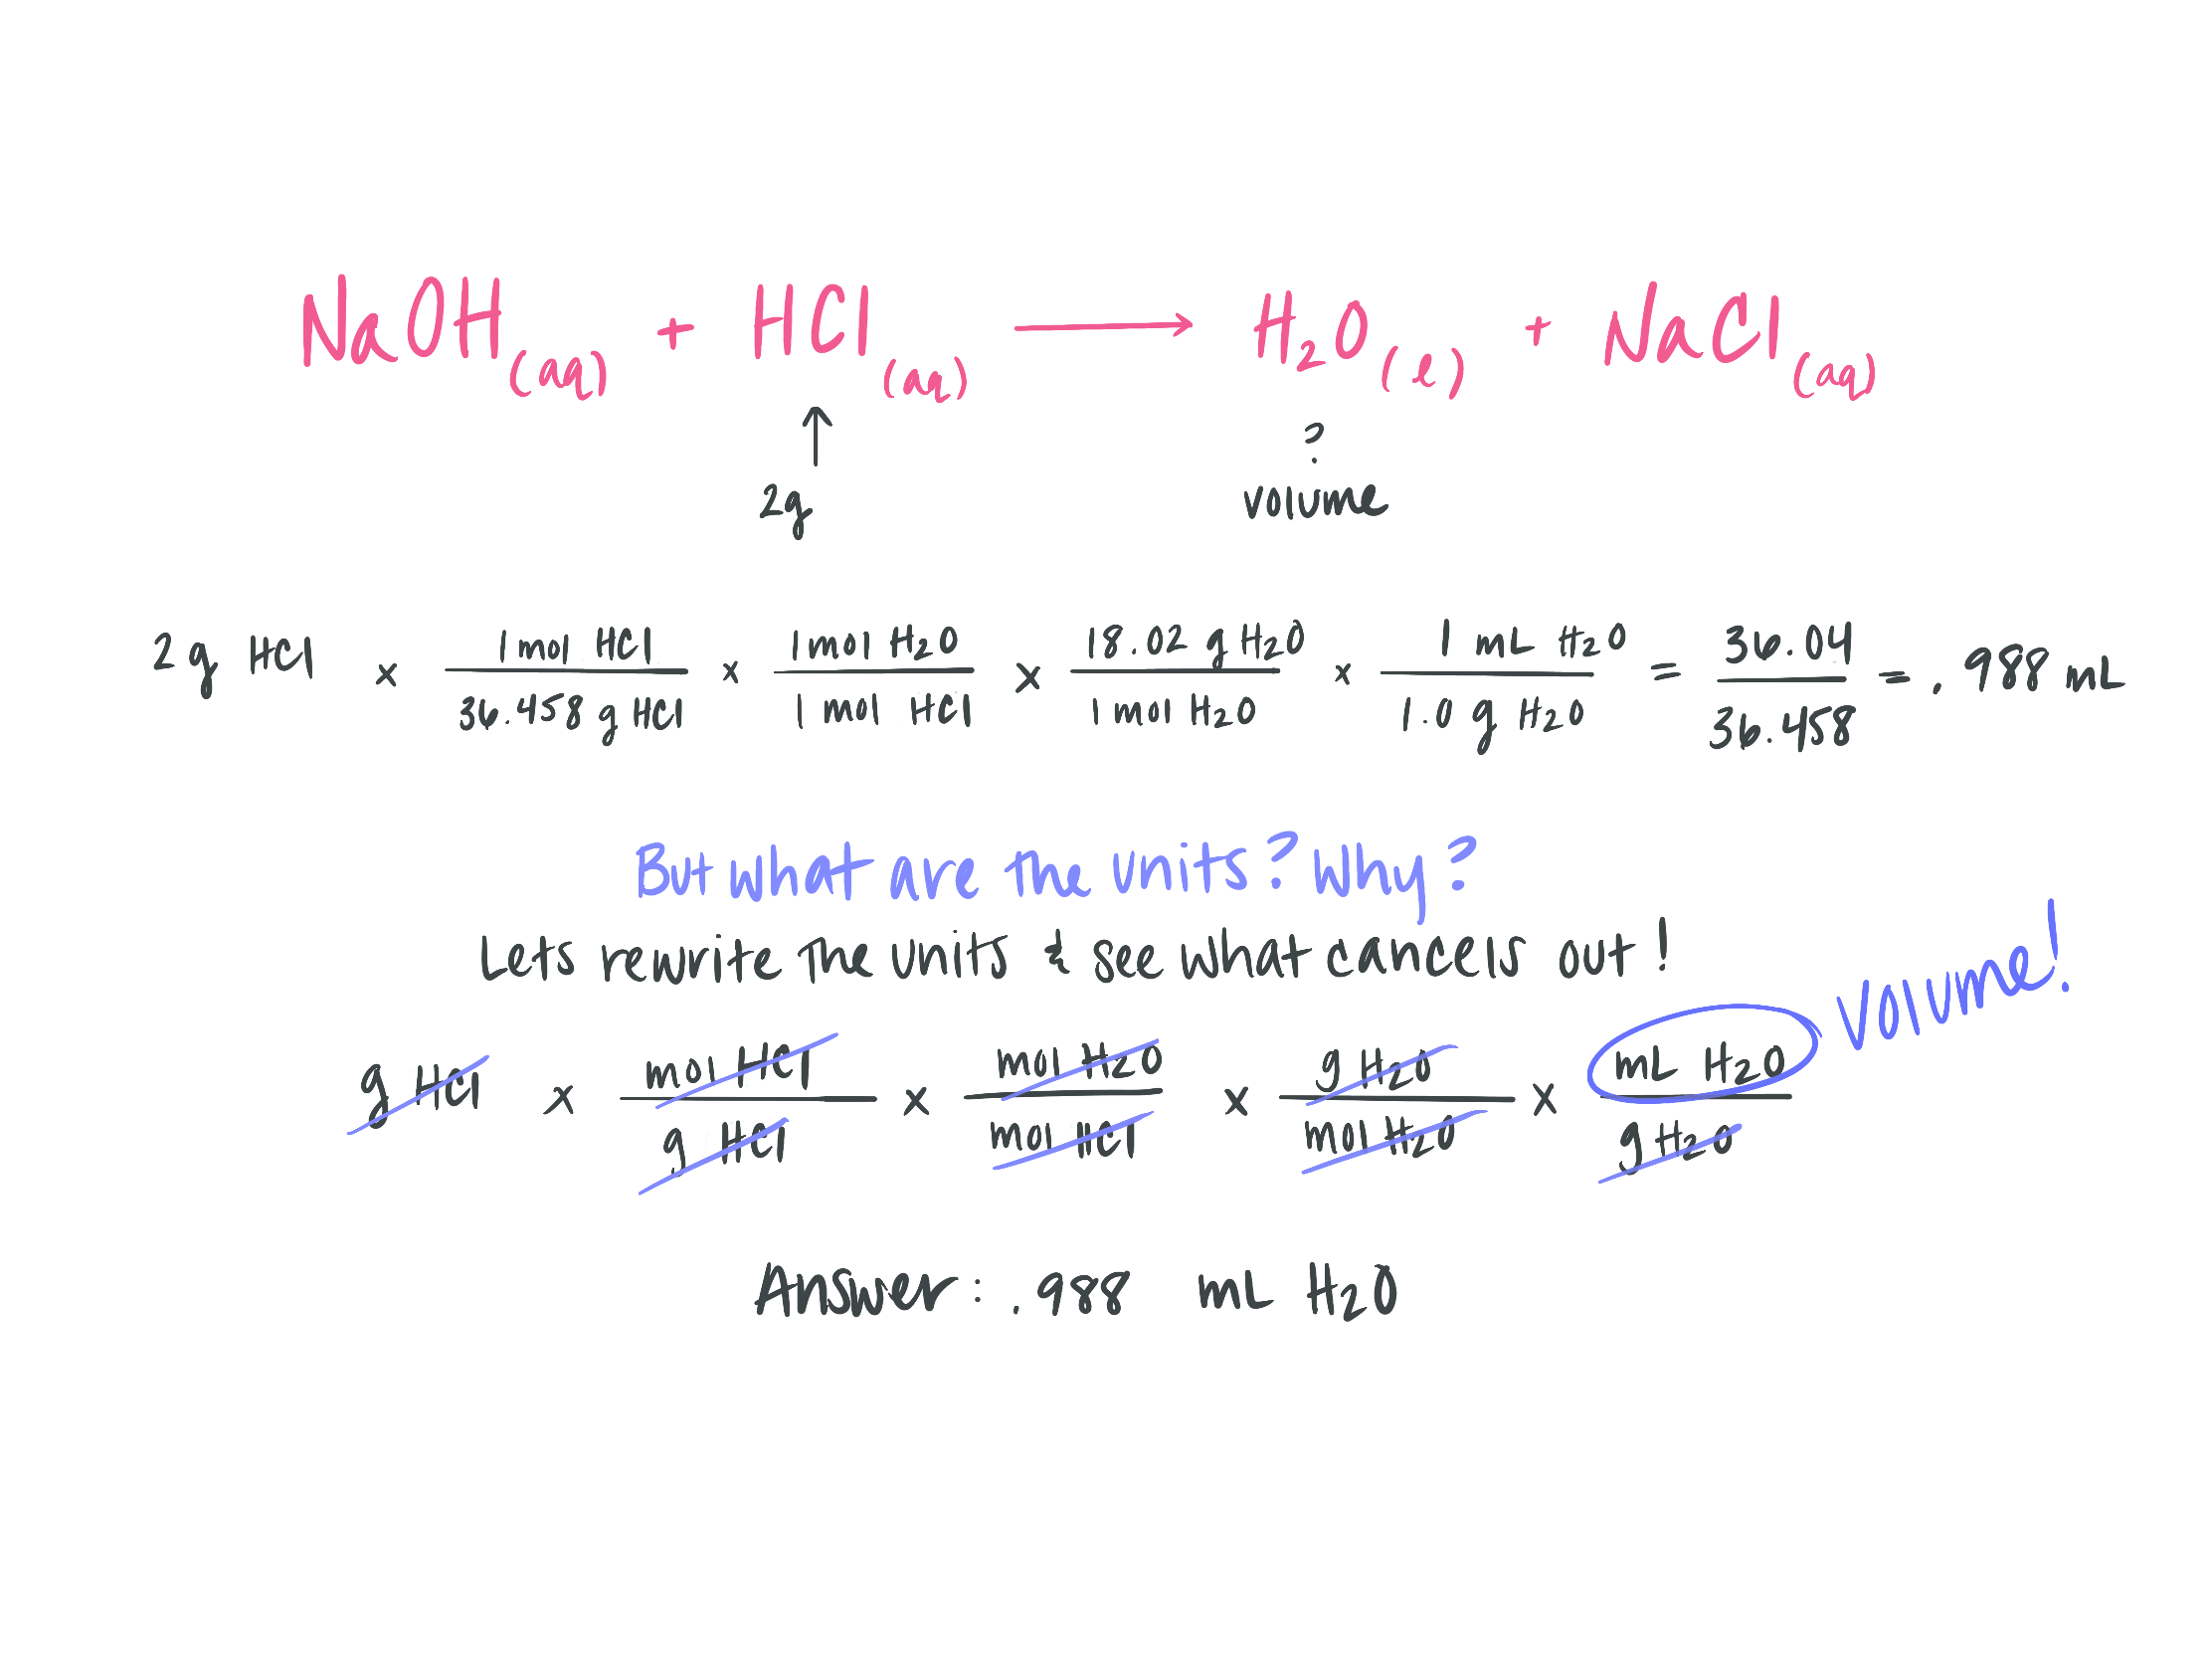 NaOH(aq) + HCl(aq) → H2O(l) + NaCl(aq)
↑ ?
2g volume
2g HCl x 1 mol HCl / 36.458 g HCl x 1 mol H2O / 1 mol HCl x 18.02 g H2O / 1 mol H2O x 1 mL H2O / 1.0 g H2O = 36.04 / 36.458 = .988 mL
But what are the units? Why?
Lets rewrite the units & see what cancels out!
Volume!
g HCl x mol HCl / g HCl x mol H2O / mol HCl x g H2O / mol H2O x mL H2O / g H2O
Answer: .988 mL H2O